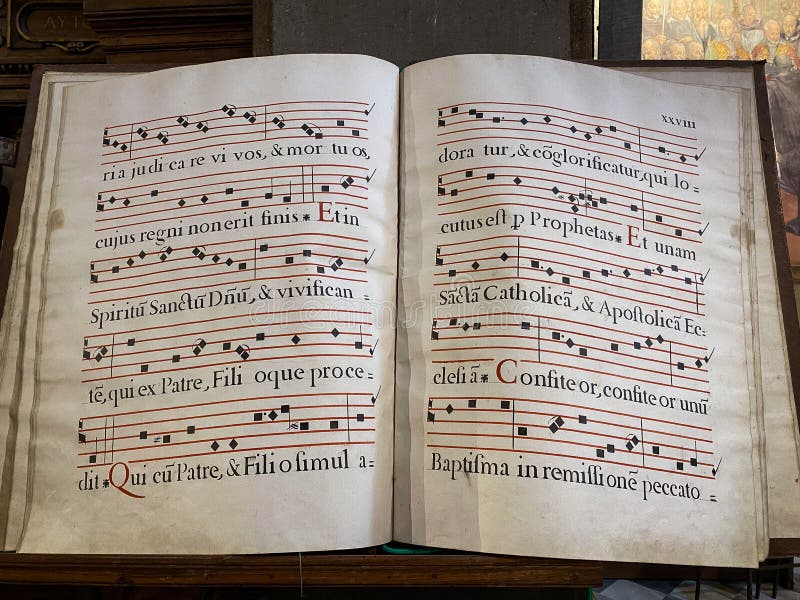 ria judi ca re vi vos, & mor tu os,
cujus regni non erit finis * Et in
Spiritū Sanctū Dñū, & vivifican
tē, qui ex Patre, Fili oque proce =
dit * Qui cū Patre, & Fili o simul a =
xxviii
dora tur, & cōglorificatur, qui lo =
cutus est ꝑ Prophetas * Et unam
Sāctā Catholicā, & Apostolicā Ec =
clesi ā * Confite or, confite or unū
Baptisma in remissi onē peccato =
dreamstime